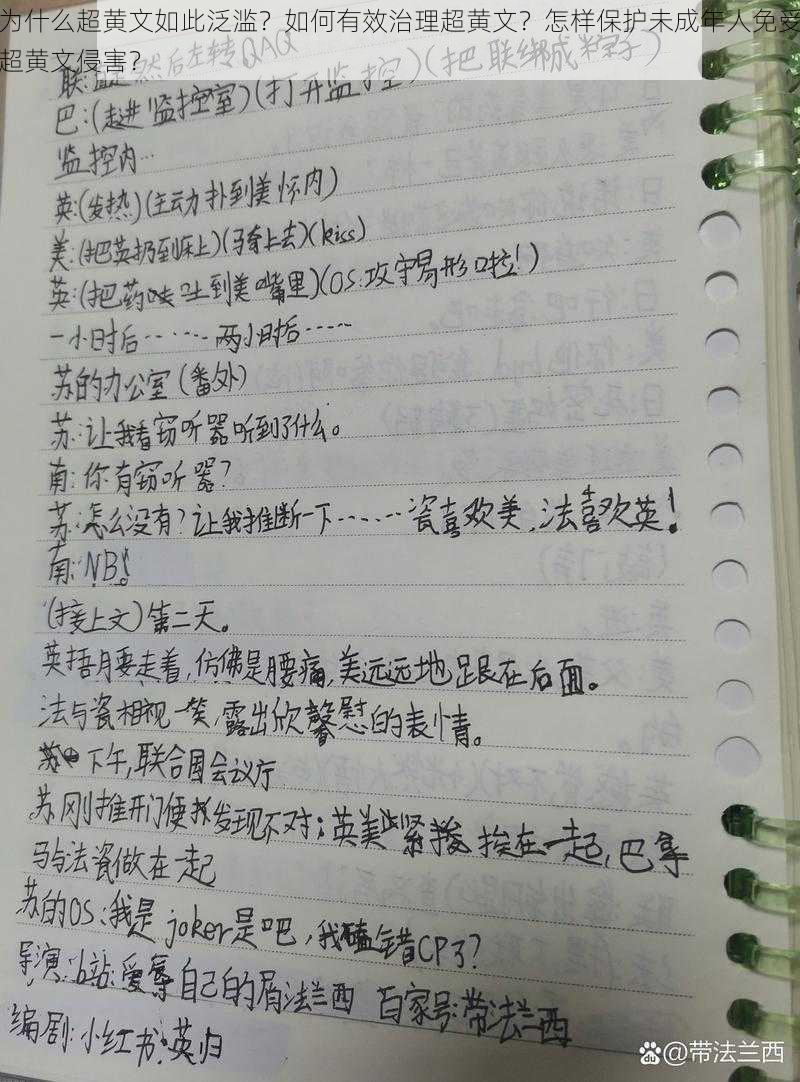 为什么超黄文如此泛滥？如何有效治理超黄文？怎样保护未成年人免受
超黄文侵害？
联: 然后左转QAQ
巴:(走进监控室)(打开监控)(把联绑成粽子)
监控内…
英:(发热)(主动扑到美怀内)
美:(把英扔到床上)(骑上去)(kiss)
英:(把药 吐到美嘴里)(OS:攻守易形啦!)
一小时后……两小时后……
苏的办公室(番外)
苏:让我看窃听器听到了什么。
南:你有窃听器?
苏:怎么没有?让我推断一下……瓷喜欢美,法喜欢英!
南:NB!
(接上文)第二天。
英捂腰走着,仿佛是腰痛,美远远地跟在后面。
法与瓷相视一笑,露出欣慰的表情。
下午,联合国会议厅
苏刚推开门便发现不对:英美紧挨在一起,巴拿
马与法瓷做在一起
苏的OS:我是joker是吧,我磕错CP了?
导演:b站:爱辱自己的屑法兰西 百家号:带法兰西
编剧:小红书:英归
@带法兰西